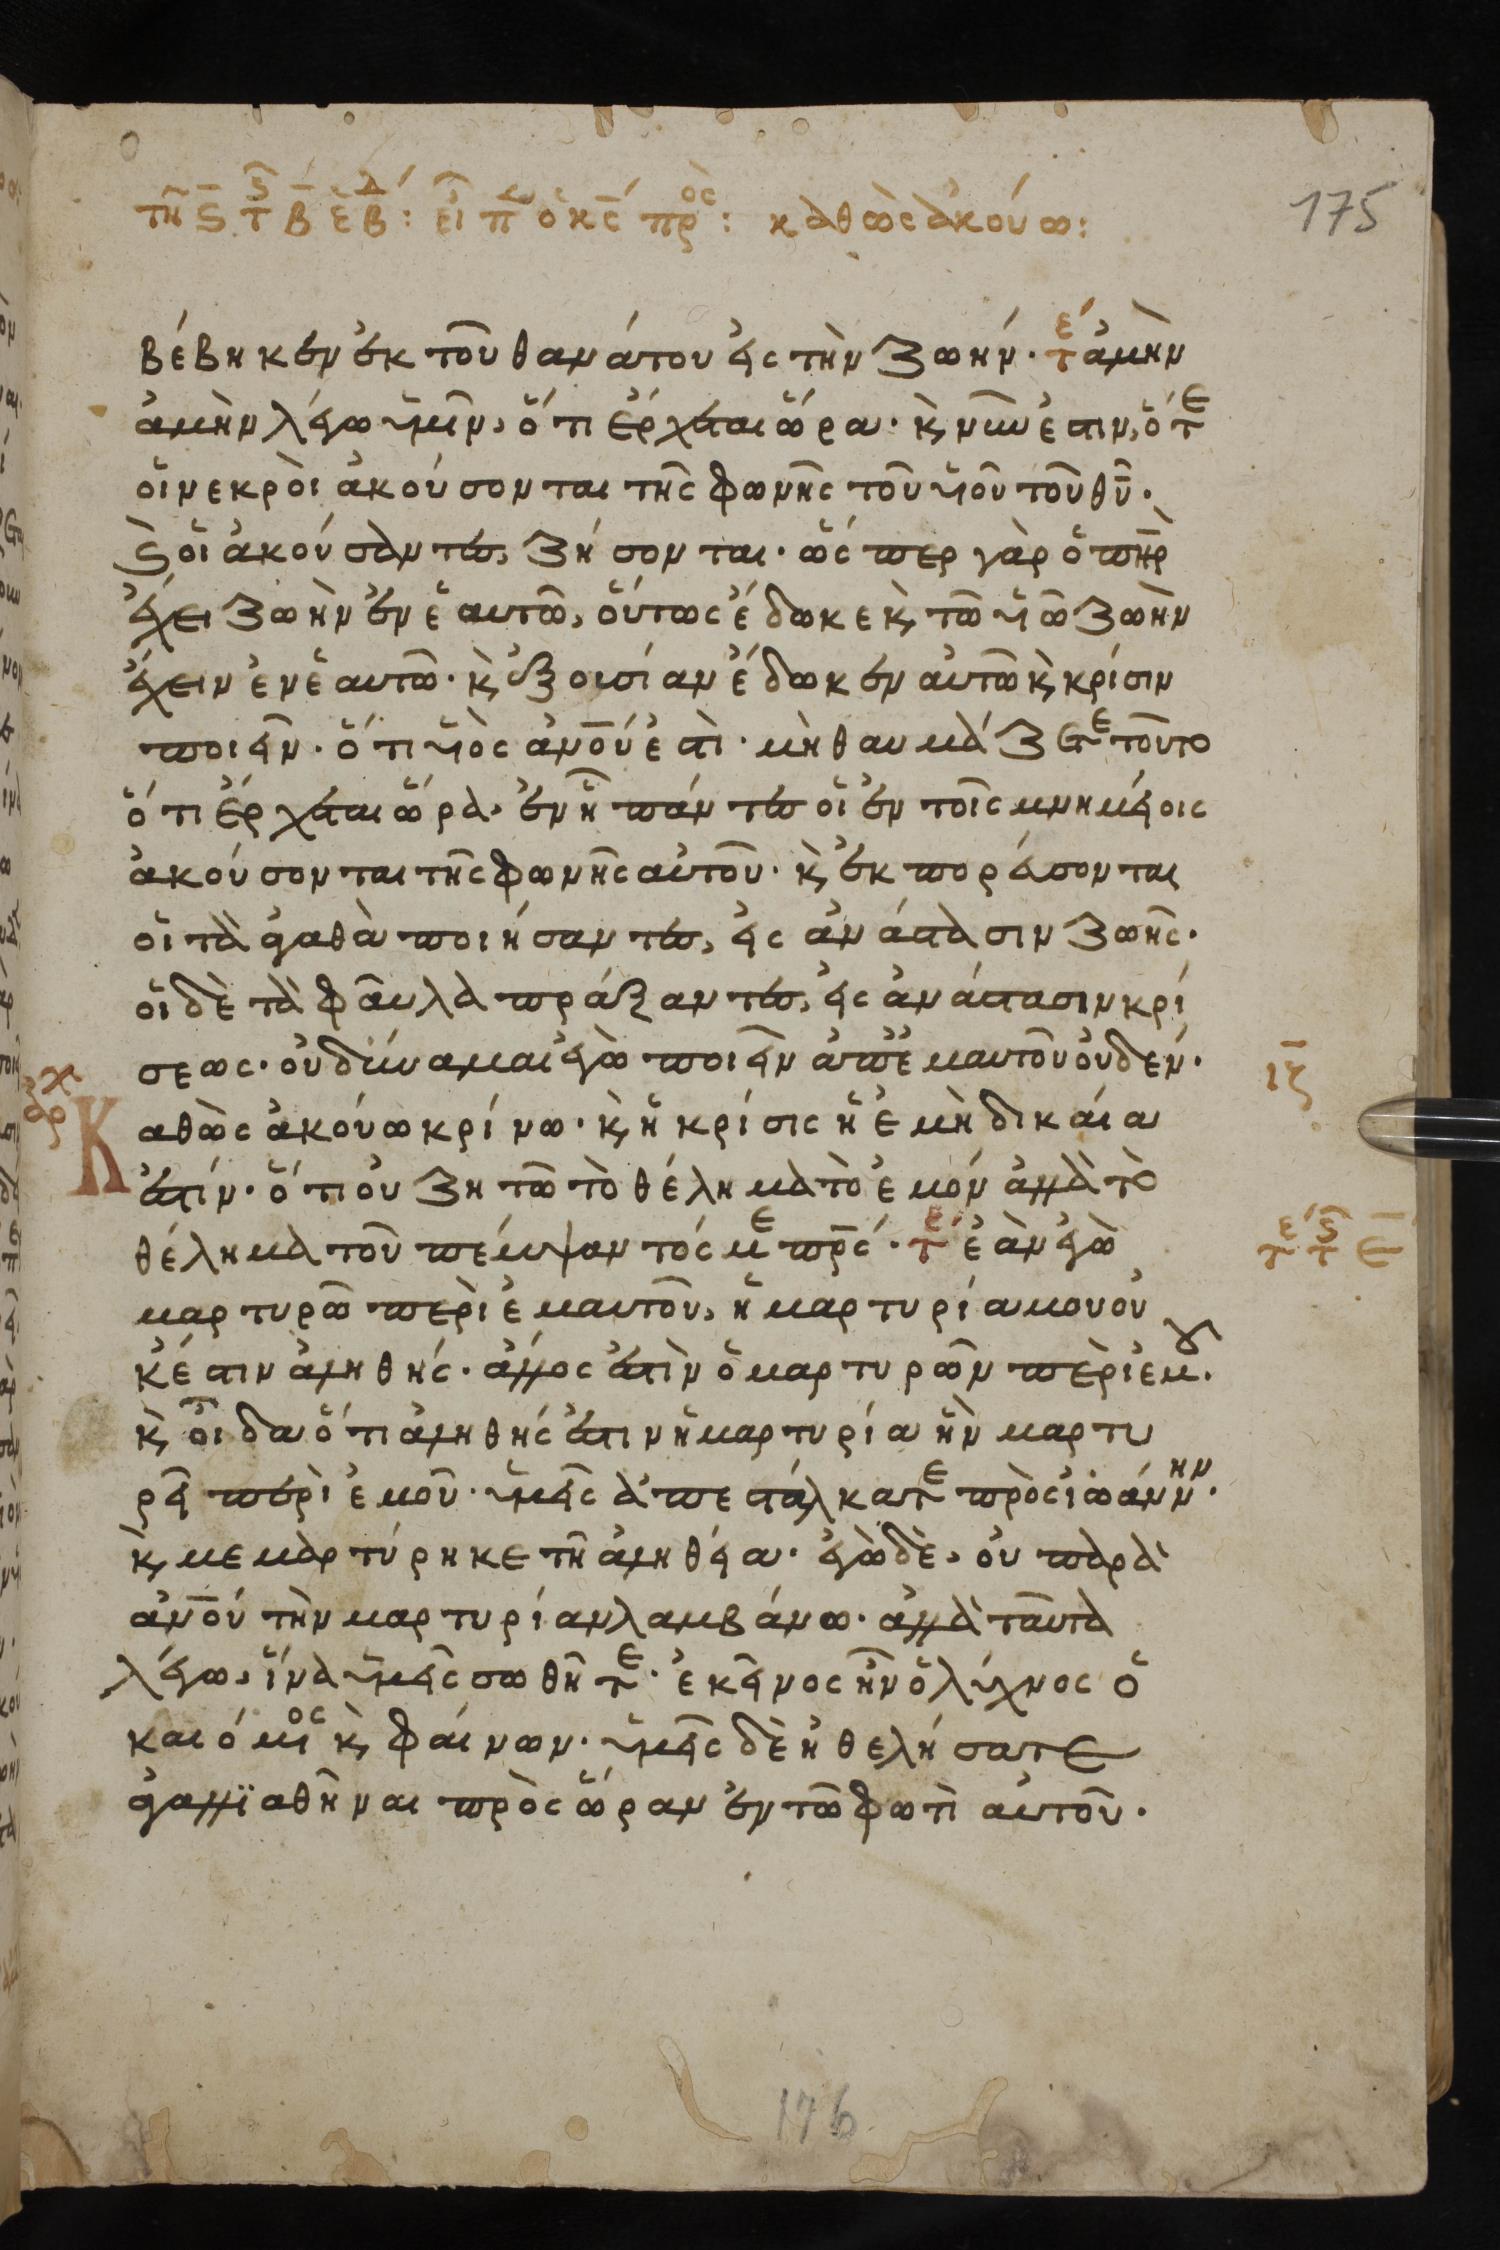 175
τῇ ϛ τ β ἑβδ : εἶπ ὁ κς πρὸς : καθὼς ἀκούω :
βέβηκεν ἐκ τοῦ θανάτου εἰς τὴν ζωήν · τέ ἀμὴν
ἀμὴν λέγω ὑμῖν, ὅτι ἔρχεται ὥρα · κ νῦν ἐστιν, ὅτε
οἱ νεκροὶ ἀκούσονται τῆς φωνῆς τοῦ υἱοῦ τοῦ θῦ ·
κ οἱ ἀκούσαντες, ζήσονται · ὥσπερ γὰρ ὁ πηρ
ἔχει ζωὴν ἐν ἑαυτῶ, οὕτως ἔδωκε κ τῶ υἱῶ ζωὴν
ἔχειν ἐν ἑαυτῶ · κ ἐξουσίαν ἔδωκεν αὐτῶ κ κρίσιν
ποιεῖν · ὅτι υἱὸς ἀνού ἐστὶ · μὴ θαυμάζετε τοῦτο
ὅτι ἔρχεται ὥρα · ἐν ἧ πάντες οἱ ἐν τοῖς μνημείοις
ἀκούσονται τῆς φωνῆς αὐτοῦ · κ ἐκπορεύσονται
οἱ τὰ ἀγαθὰ ποιήσαντες, εἰς ἀνάστασιν ζωῆς ·
οἱ δὲ τὰ φαῦλα πράξαντες, εἰς ἀνάστασιν κρί
σεως · οὐ δύναμαι ἐγὼ ποιεῖν ἀπ' ἐμαυτοῦ οὐδέν · ιζ
Καθὼς ἀκούω κρίνω · κ ἡ κρίσις ἡ ἐμὴ δικαία
ἐστίν · ὅτι οὐ ζητῶ τὸ θέλημα τὸ ἐμόν ἀλλὰ τὸ
θέλημα τοῦ πέμψαντός με πρς · τέ ἐὰν ἐγὼ
μαρτυρῶ περὶ ἐμαυτοῦ, ἡ μαρτυρία μου οὐ
κ ἔστιν ἀληθής · ἄλλος ἐστὶν ὁ μαρτυρῶν περὶ ἐμοῦ ·
κ οἶδα ὅτι ἀληθής ἐστιν ἡ μαρτυρία ἣν μαρτυ
ρεῖ περὶ ἐμοῦ · ὑμεῖς ἀπεστάλκατε πρὸς ἰωάννην ·
κ μεμαρτύρηκε τῆ ἀληθεία · ἐγὼ δὲ, οὐ παρὰ
ἀνού τὴν μαρτυρίαν λαμβάνω · ἀλλὰ ταῦτα
λέγω, ἵνα ὑμεῖς σωθῆτε · ἐκεῖνος ἦν ὁ λύχνος ὁ
καιόμενος κ φαίνων · ὑμεῖς δὲ ἠθελήσατε
ἀγαλλϊαθῆναι πρὸς ὥραν ἐν τῶ φωτὶ αὐτοῦ ·
176